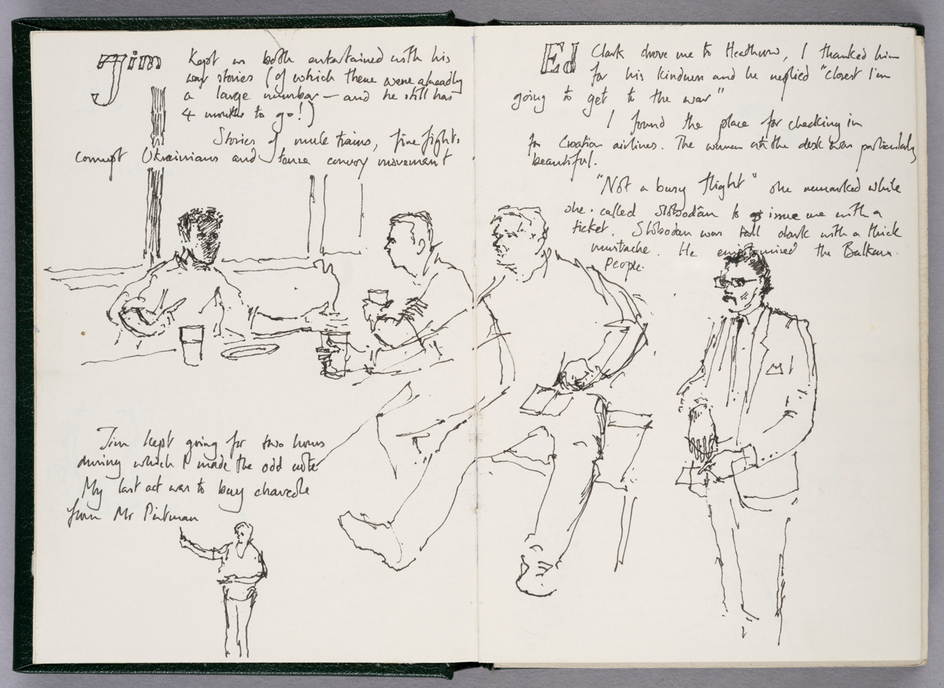 Jim Kept us both entertained with his
war stories (of which there were already
a large number — and he still has
4 months to go!)
Stories of mule trains, fire fights
corrupt Ukrainians and tense convoy movement
Jim kept going for two hours
during which I made the odd note
My last act was to buy charcole
from Mr Pitman
Ed Clark drove me to Heathrow, I thanked him
for his kindness and he replied "closest I'm
going to get to the war"
I found the place for checking in
for Croatian airlines. The woman at the desk was particularly
beautiful.
"Not a busy flight" she remarked while
she called Slobodan to issue me with a
ticket. Slobodan was tall dark with a thick
mustache. He the Balkan
People.